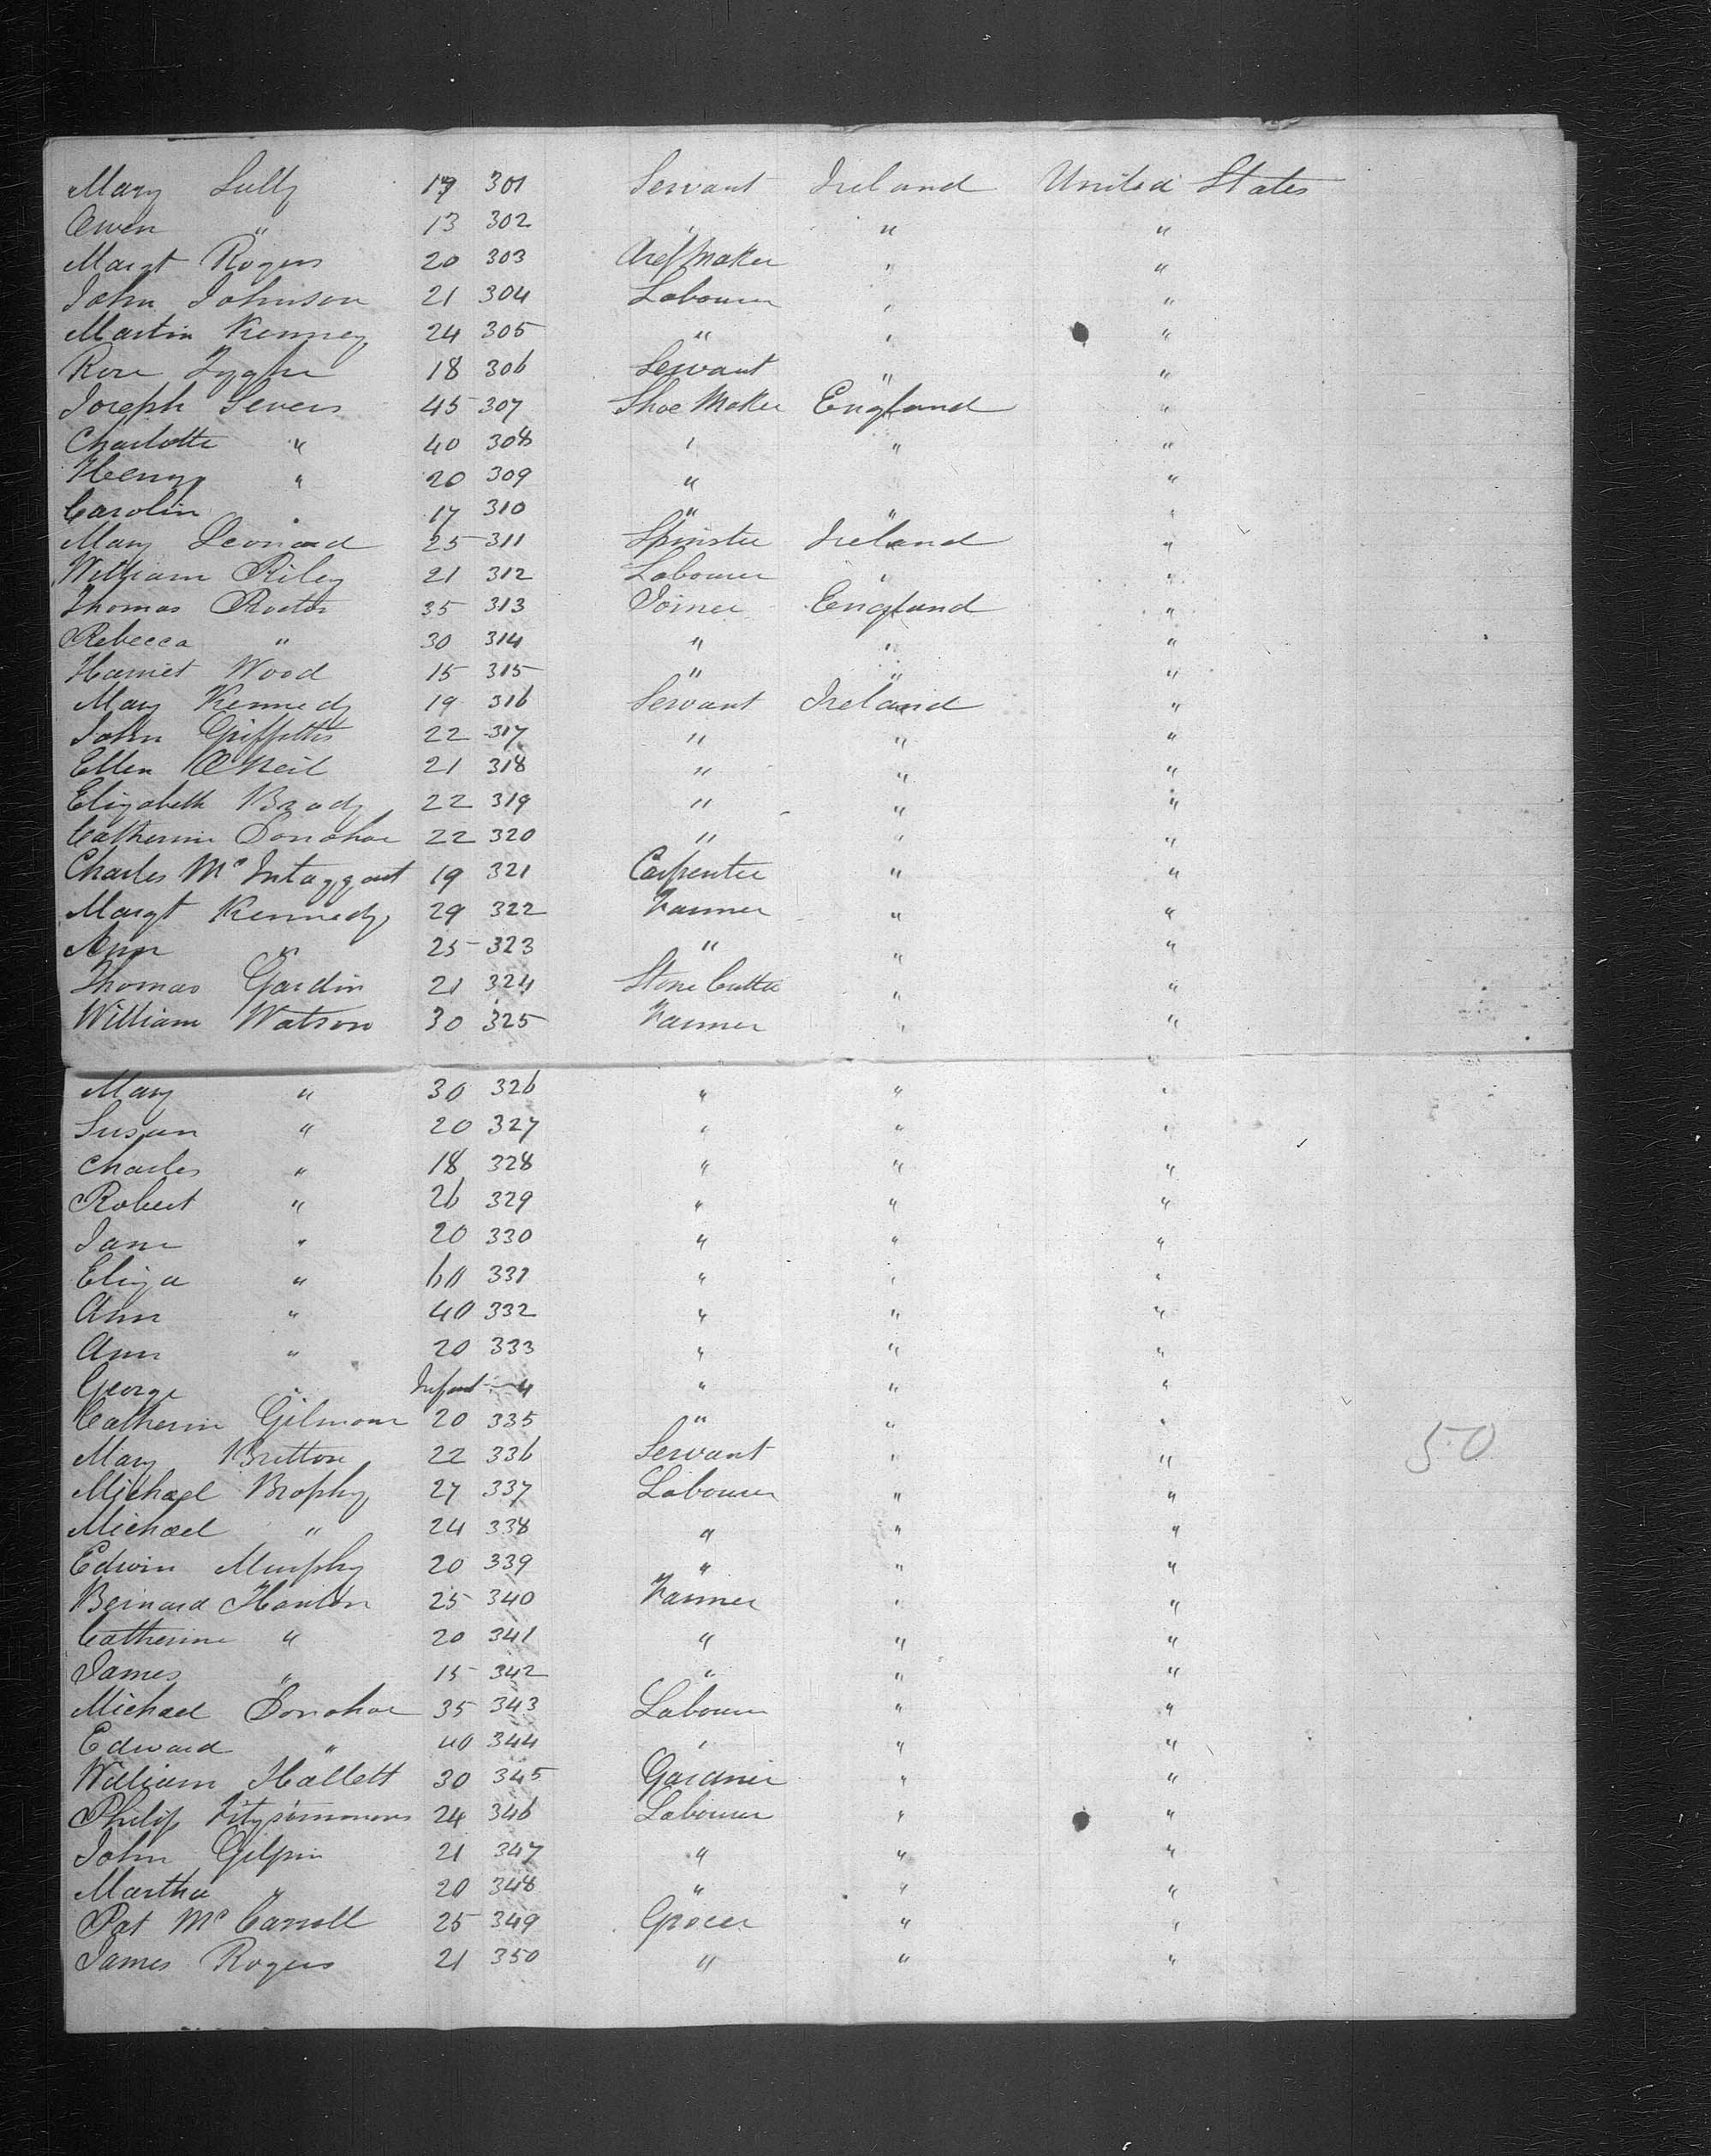 Mary Lully 19 301 Servant Ireland United States
Owen " 13 302 " " "
Margt Rogers 20 303 Maker " "
John Johnson 21 304 Labourer " "
Martin Kenney 24 305 " " "
Rose 18 306 Servant " "
Joseph Severs 45 307 Shoe Maker England "
Charlotte " 40 308 " " "
Henry " 20 309 " "
Carolin " 17 310 " " "
Mary Leonard 25 311 Spinster Ireland "
William Riley 21 312 Labourer " "
Thomas 35 313 Joiner England "
Rebecca " 30 314 " " "
Harriet Wood 15 315 " " "
Mary Kennedy 19 316 Servant Ireland "
John Griffiths 22 317 " " "
Ellen O'Neil 21 318 " " "
Elizabeth Brady 22 319 " " "
Catherine Donohoe 22 320 " " "
Charles Mc Intaggart 19 321 Carpenter " "
Margt Kennedy 29 322 Farmer " "
Ann " 25 323 " " "
Thomas Gardin 21 324 Stone Cutter " "
William Watson 30 325 Farmer " "
Mary " 30 326 " " "
Susan " 20 327 " " "
Charles " 18 328 " " "
Robert " 26 329 " " "
Jane " 20 330 " " "
Eliza " 60 331 " " "
Ann " 40 332 " " "
Ann " 20 333 " " "
George " Infant 4 " " "
Catherin Gilmour 20 335 " " "
Mary Britton 22 336 Servant " "
50
Michael Brophy 27 337 Labourer " "
Michael " 24 338 " " "
Edwin Murphy 20 339 " " "
Bernard Hanlon 25 340 Farmer " "
Catherine " 20 341 " " "
James " 15 342 " " "
Michael Donohoe 35 343 Labourer " "
Edward " 40 344 " " "
William Hallett 30 345 Gardner " "
Philip Fitzsimmons 24 346 Labourer " "
John Gilpin 21 347 " " "
Martha " 20 348 " " "
Pat Mc Carroll 25 349 Grocer " "
James Rogers 21 350 " " "